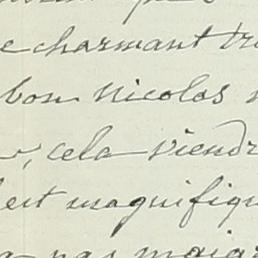 e charmant
bon Nicolas
, cela viendr
est magnifiqu
pas maigr